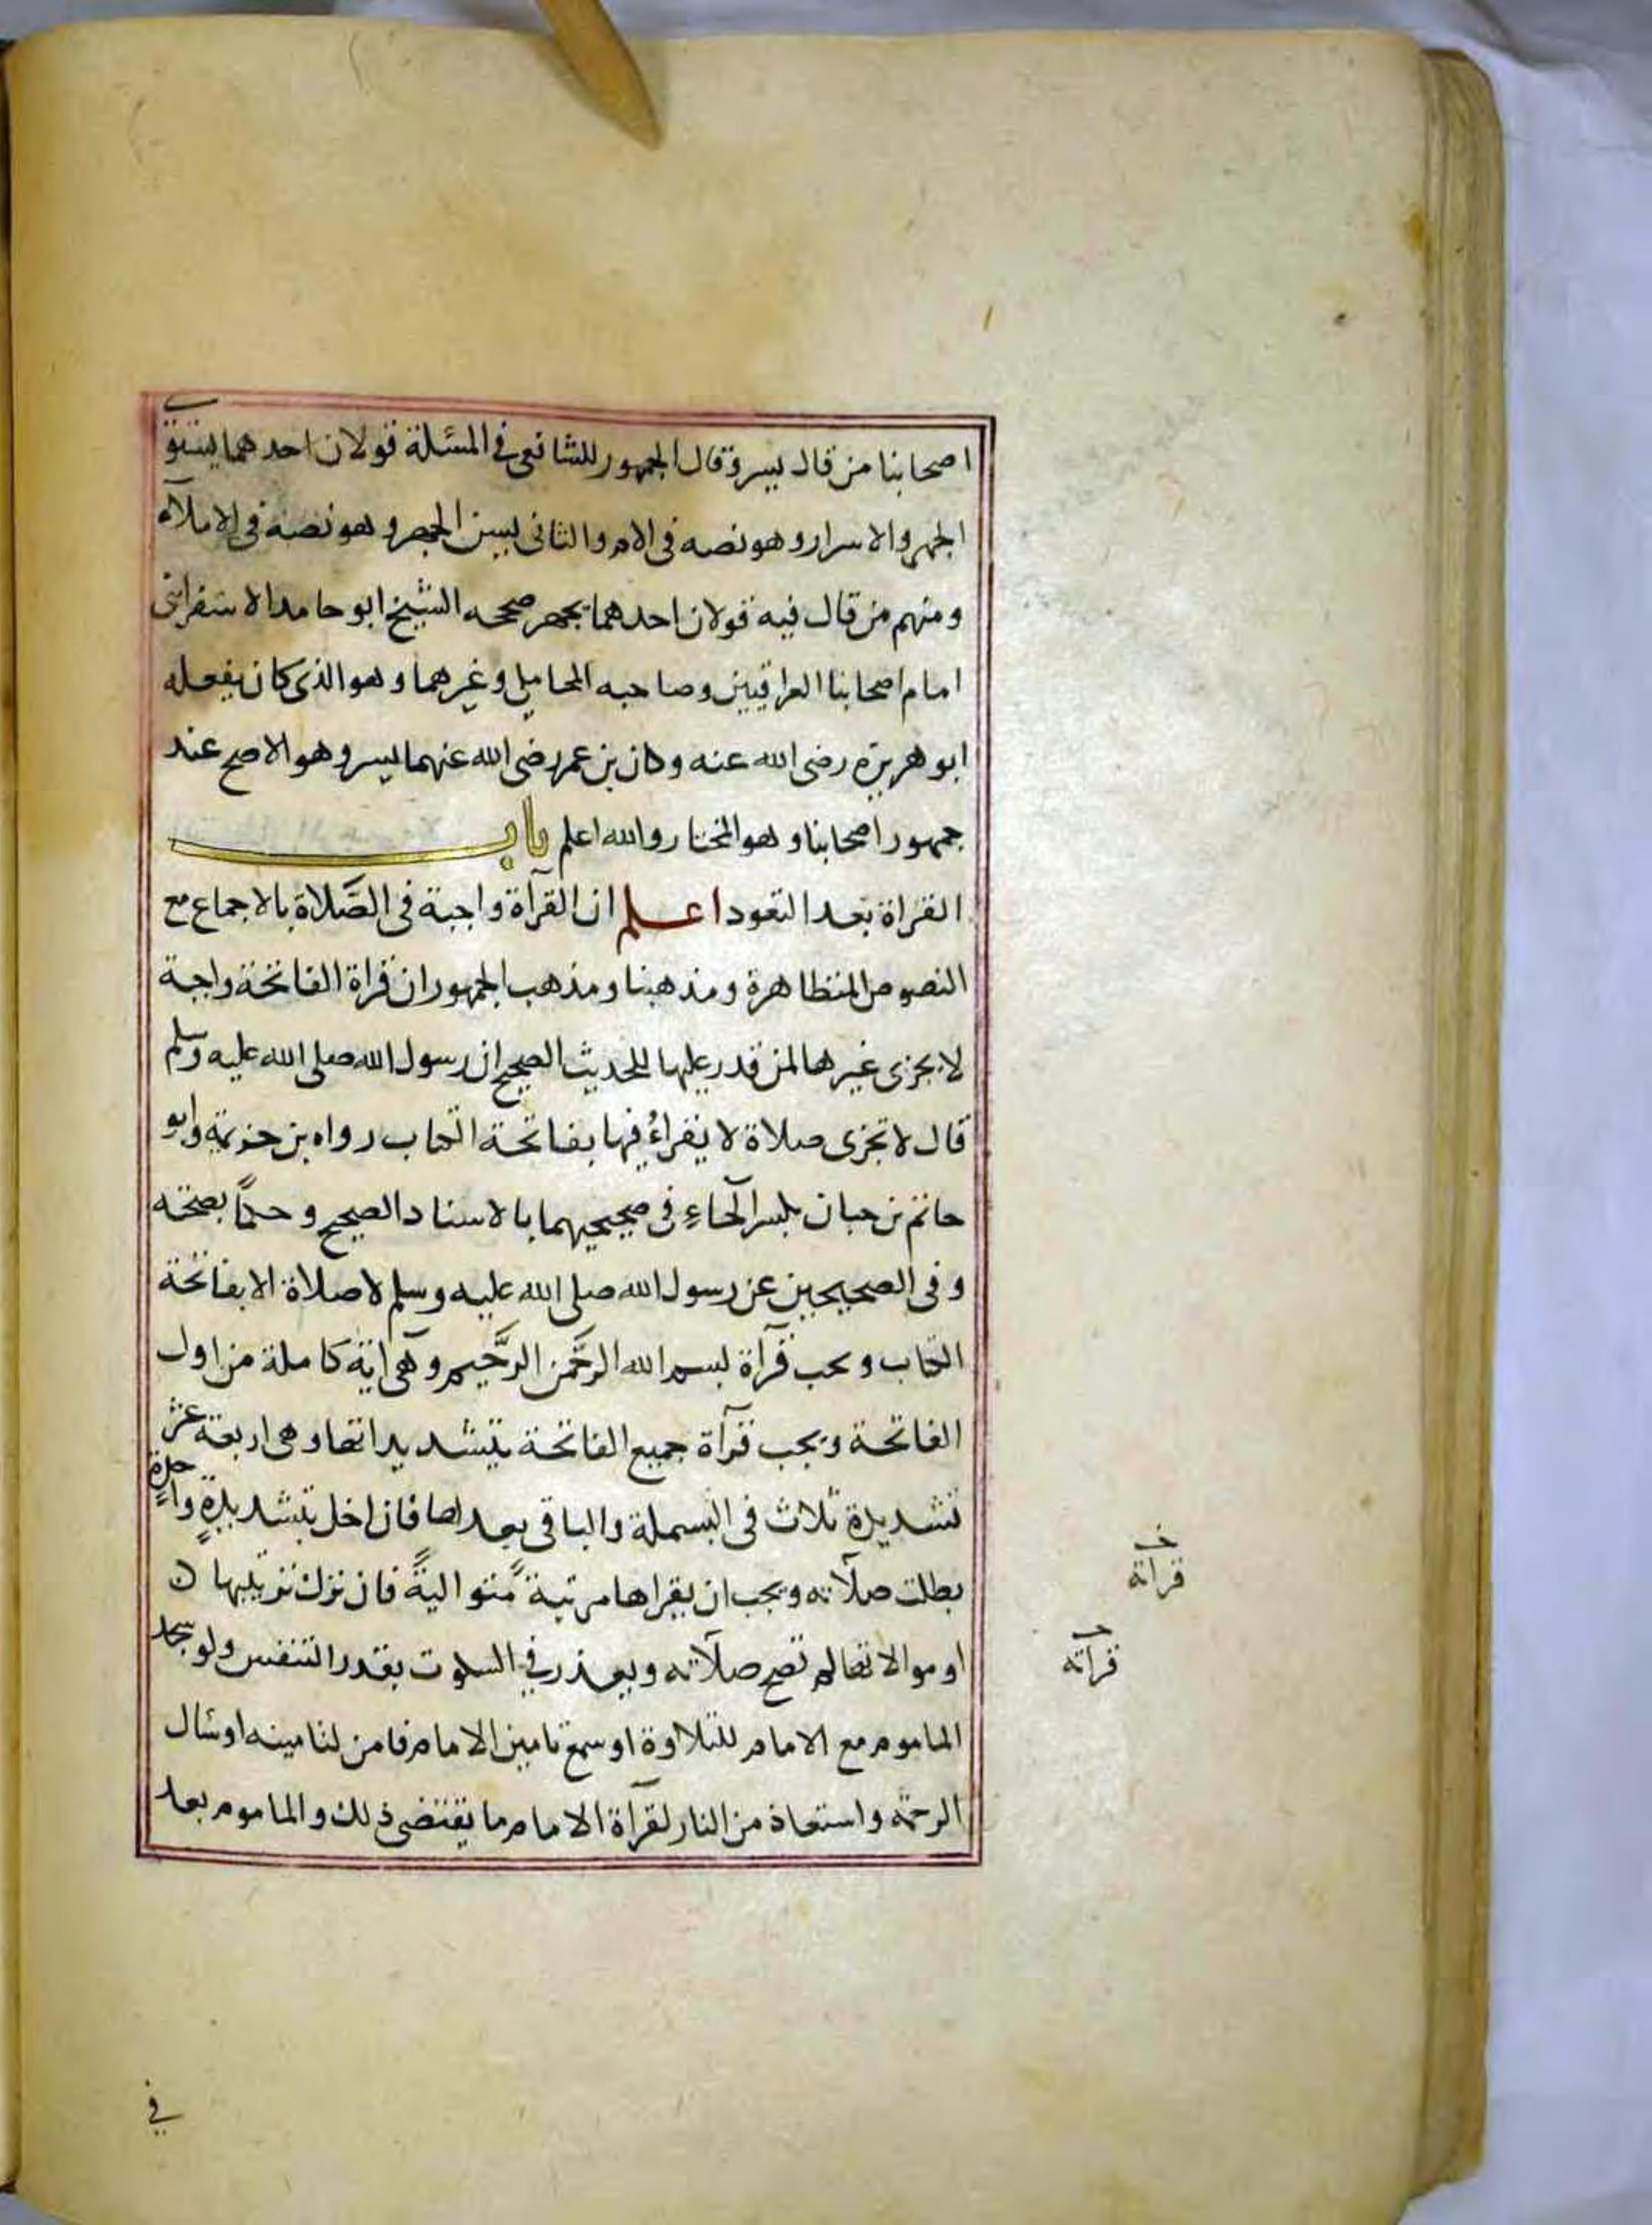 اصحابنا من قال يسر وقال الجمهور للشافعى فى المسئلة قولان احدهما يستوى
الجهر والاسرار وهو نصه فى الام والثانى يسن الجهر وهو نصه فى الاملآء
ومنهم من قال فيه قولان احدهما يجهر صححه الشيخ ابو حامد الاسفراينى
امام اصحابنا العراقيين وصاحبه المحاملى وغيرهما وهو الذى كان يفعله
ابو هريرة رضى الله عنه وكان بن عمر رضى الله عنهما يسر وهو الاصح عند
جمهور اصحابنا وهو المختار والله اعلم باب
القراة بعد التعوذ اعلم ان القرآة واجبة فى الصَّلاة بالاجماع مع
النصوص المتظاهرة ومذهبنا ومذهب الجمهور ان قراة الفاتحة واجبة
لا يجزى غيرها لمن قدر عليها للحديث الصحيح ان رسول الله صلى الله عليه وسلم
قال لا تجزى صلاة لا يقراءُ فيها بفاتحة الكتاب رواه بن خزيمة وابو
حاتم بن حبان بكسر الحآءِ فى صحيحيهما بالاسناد الصحيح وحكماً بصحته
وفى الصحيحين عن رسول الله صلى الله عليه وسلم لا صلاة الا بفاتحة
الكتاب ويجب قرآة بسم الله الرَّحمن الرَّحيم وهى آية كاملة من اول
الفاتحة ويجب قرآة جميع الفاتحة بتشديداتها وهى اربعة عشر
تشديدة ثلاث فى البسملة والباقى بعدها فان اخل بتشديدةٍ واحدةٍ
بطلت صلآته ويجب ان يقراها مرتبة متواليةً فان ترك ترتيبها
او موالاتها لم تصح صلآته ويعذر فى السكوت بقدر التنفس ولو سجد
الماموم مع الامام للتلاوة او سمع تامين الامام فامن لتامينه او سال
الرحمة واستعاذ من النار لقرآة الامام ما يقتضى ذلك والماموم بعد
قراته
قراته
فى